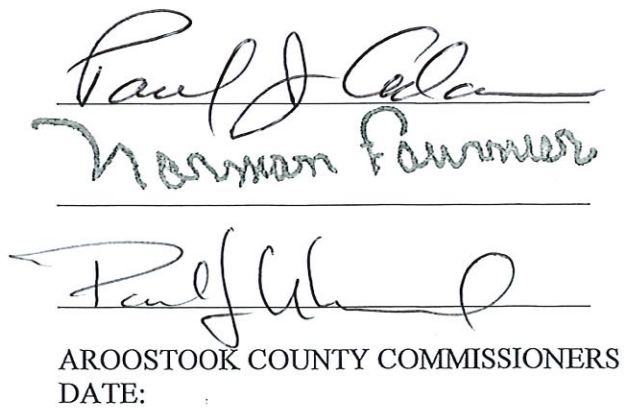 Paul J Adams
Norman Fournier
Paul J
AROOSTOOK COUNTY COMMISSIONERS
DATE: